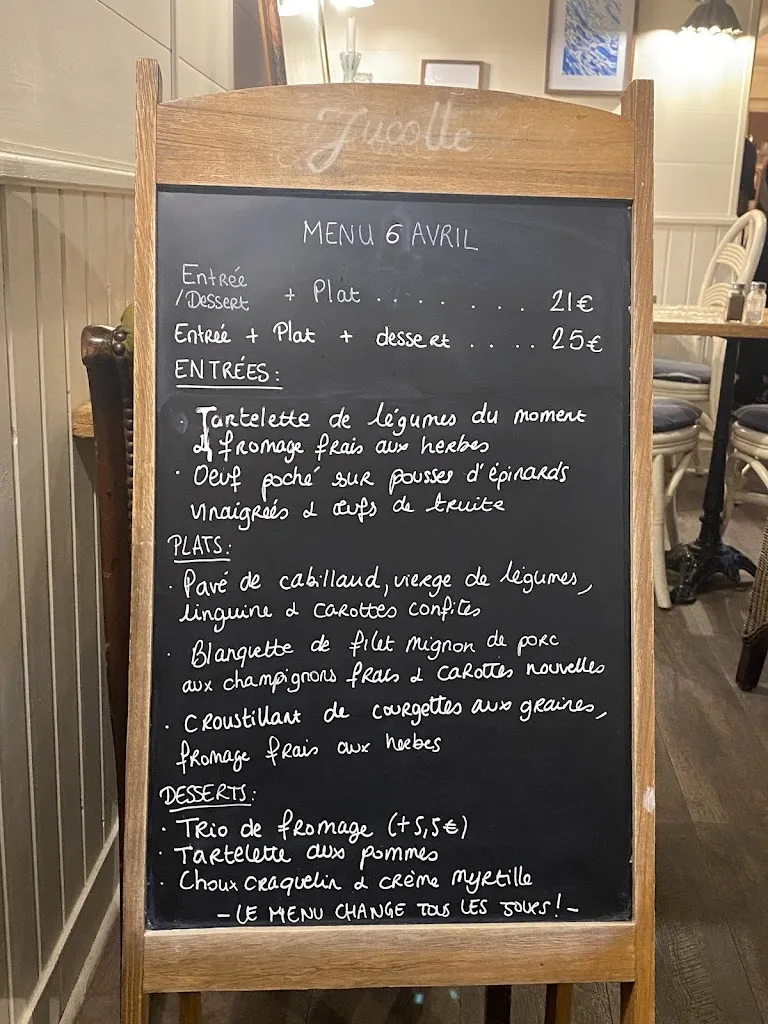 Jucolle
MENU 6 AVRIL
Entrée
/Dessert + Plat . . . . . . . 21€
Entrée + Plat + dessert . . . . 25€
ENTRÉES :
· Tartelette de légumes du moment
& fromage frais aux herbes
· Oeuf poché sur pousses d'épinards
vinaigrés & œufs de truite
PLATS :
· Pavé de cabillaud, vierge de légumes,
linguine & carottes confites
· Blanquette de filet mignon de porc
aux champignons frais & carottes nouvelles
· Croustillant de courgettes aux graines,
fromage frais aux herbes
DESSERTS :
· Trio de fromage (+5,5€)
· Tartelette aux pommes
· Choux craquelin & crème myrtille
- LE MENU CHANGE TOUS LES JOURS ! -